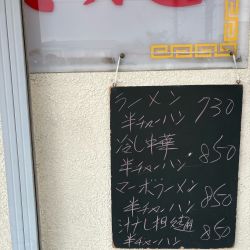 ラーメン 730
半チャーハン
冷し中華 850
半チャーハン
マーボラーメン 850
半チャーハン
850
半チャーハン